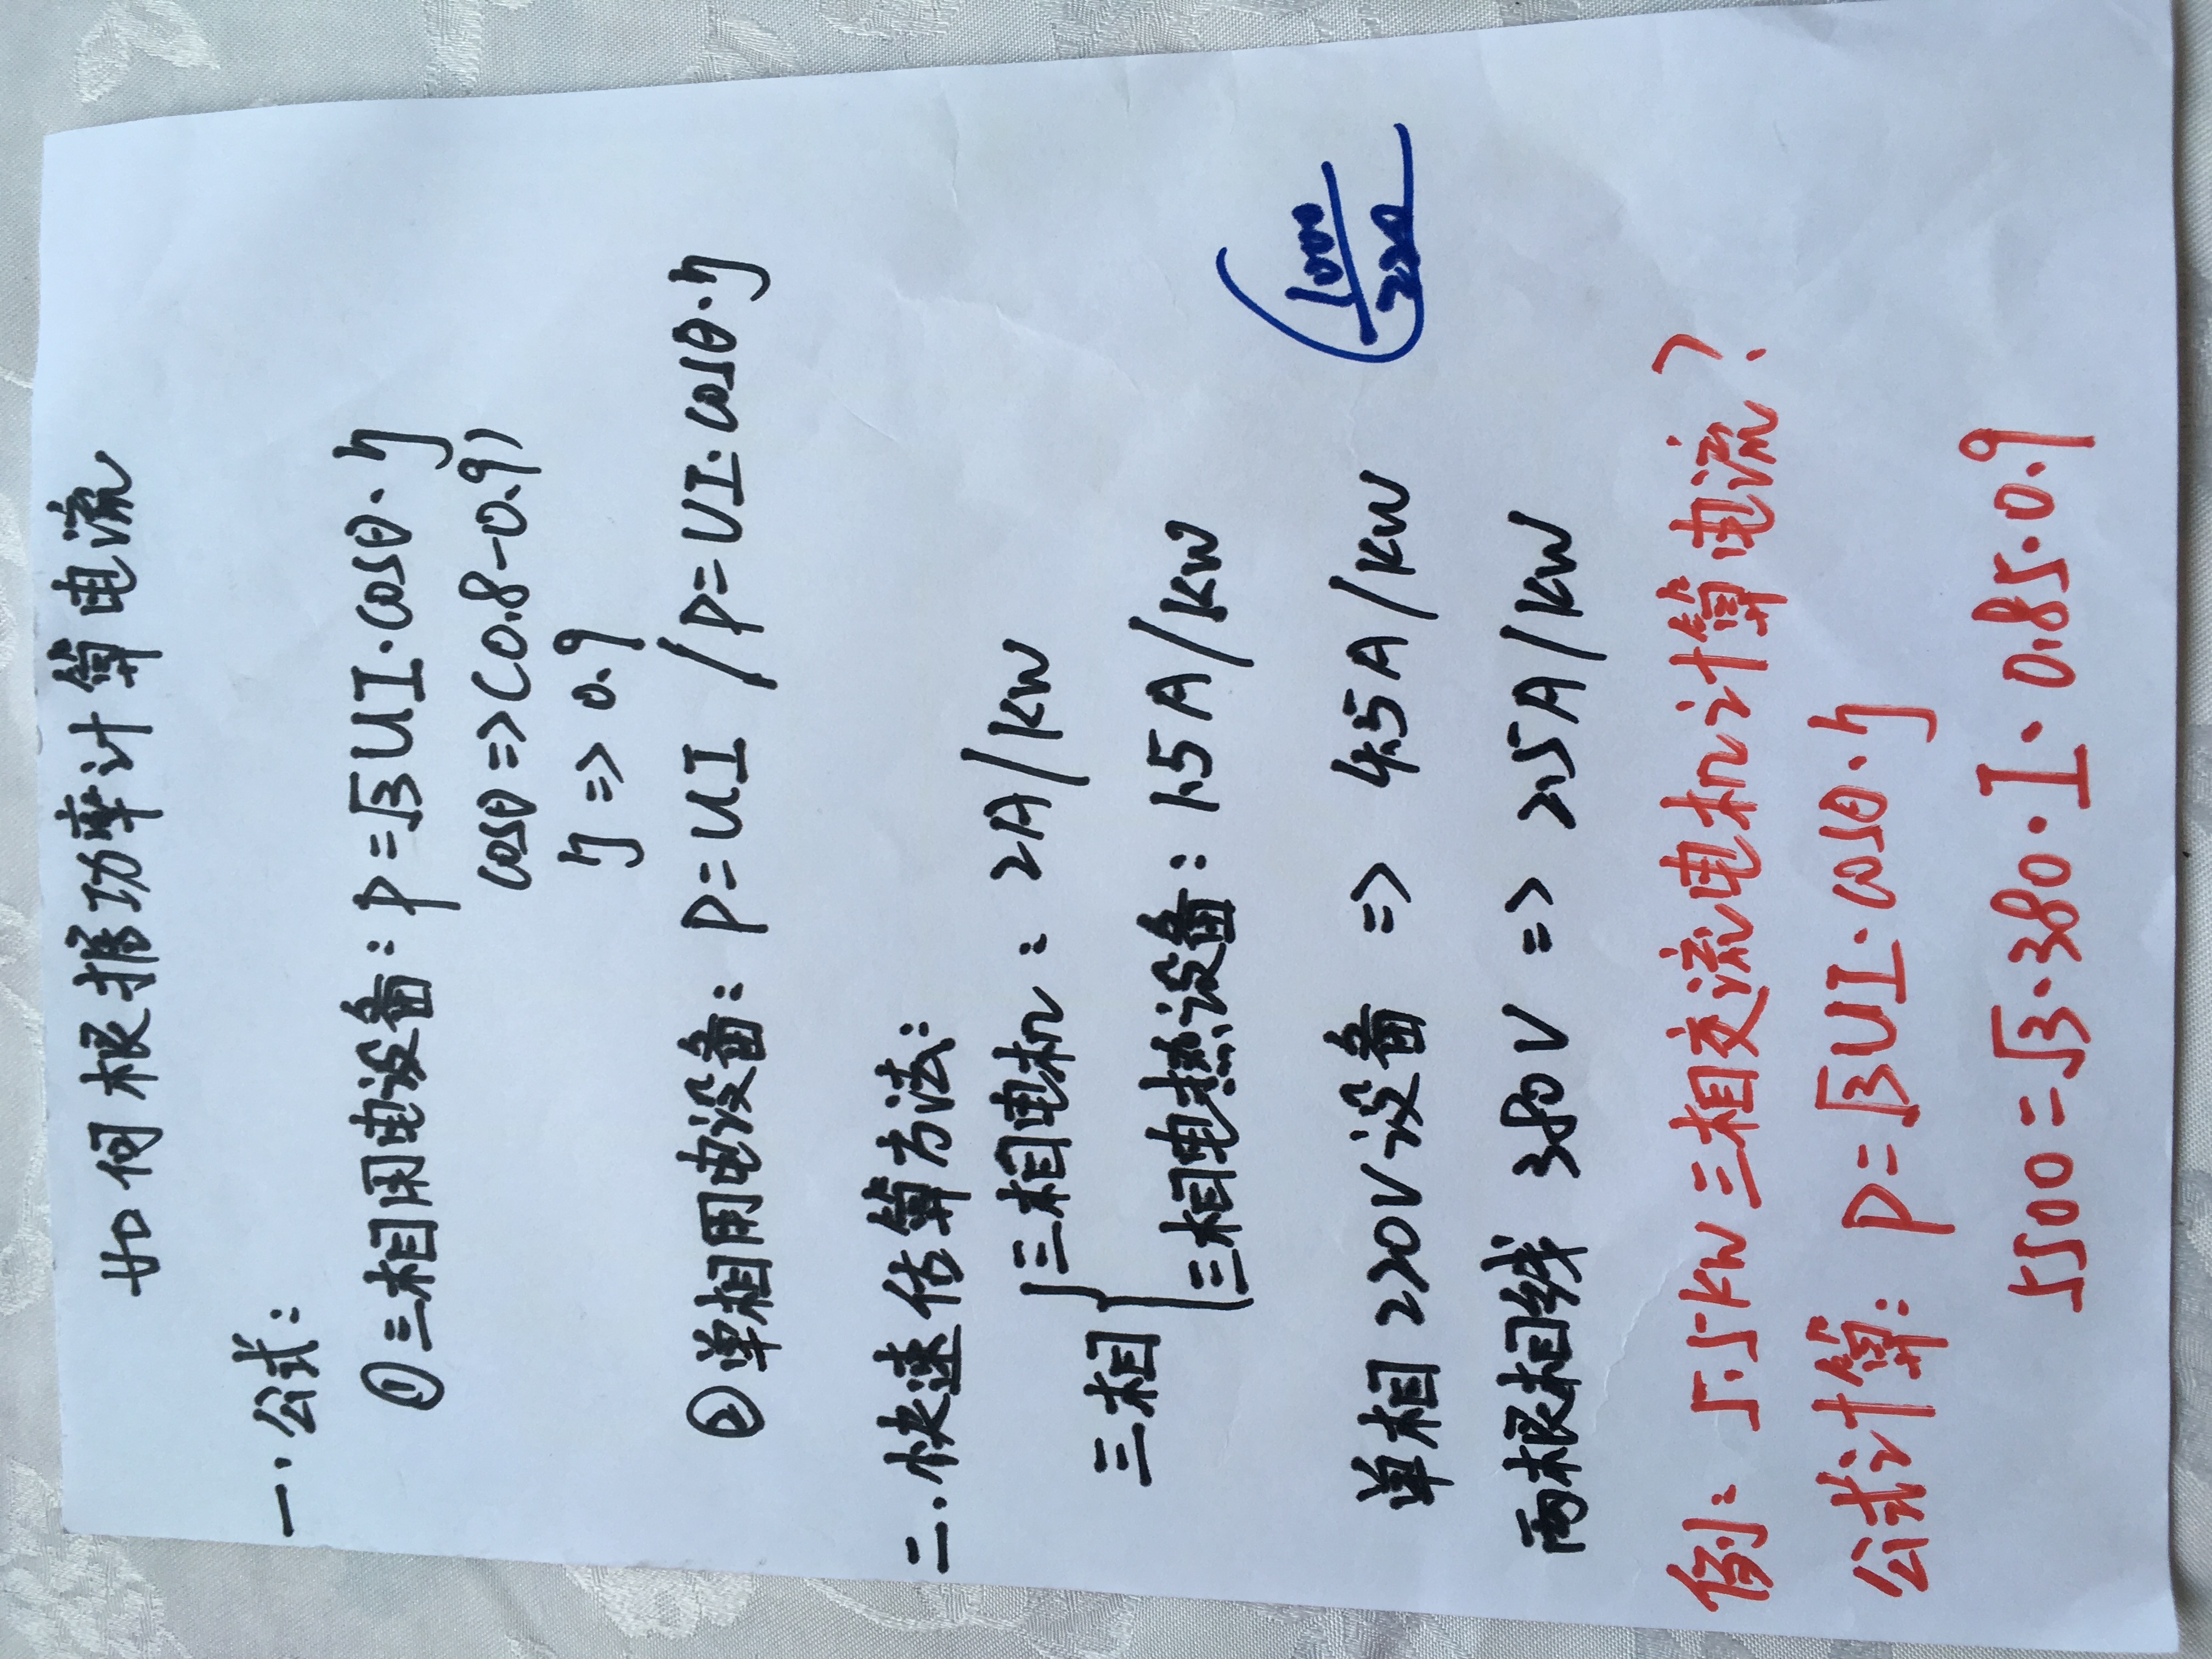 如何根据功率计算电流
一.公式:
①三相用电设备:P=√3UI·cosθ·η
cosθ=>(0.8-0.9)
η=>0.9
②单相用电设备:P=UI/P=UI·cosθ·η
二.快速估算方法:
三相{三相电机:2A/KW
三相电热设备:1.5A/KW
(1000/220)
单相220V设备=>4.5A/KW
两根相线380V=>2.5A/KW
例:5.5KW三相交流电机计算电流?
公式计算:P=√3UI·cosθ·η
5500=√3·380·I·0.85·0.9